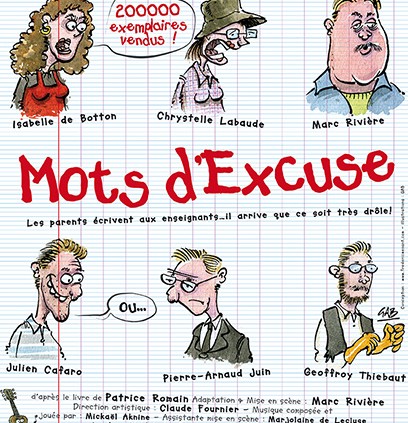 200000
exemplaires
vendus !
Isabelle de Botton
Chrystelle Labaude
Marc Rivière
Mots d'Excuse
Les parents écrivent aux enseignants...il arrive que ce soit très drôle!
OU...
GAB
Julien Cafaro
Pierre-Arnaud Juin
Geoffroy Thiebaut
d'après le livre de Patrice Romain Adaptation & Mise en scène : Marc Rivière
Direction artistique : Claude Fournier - Musique composée et
jouée par : Mickaël Aknine - Assistante mise en scène : Marjolaine de Lecluse